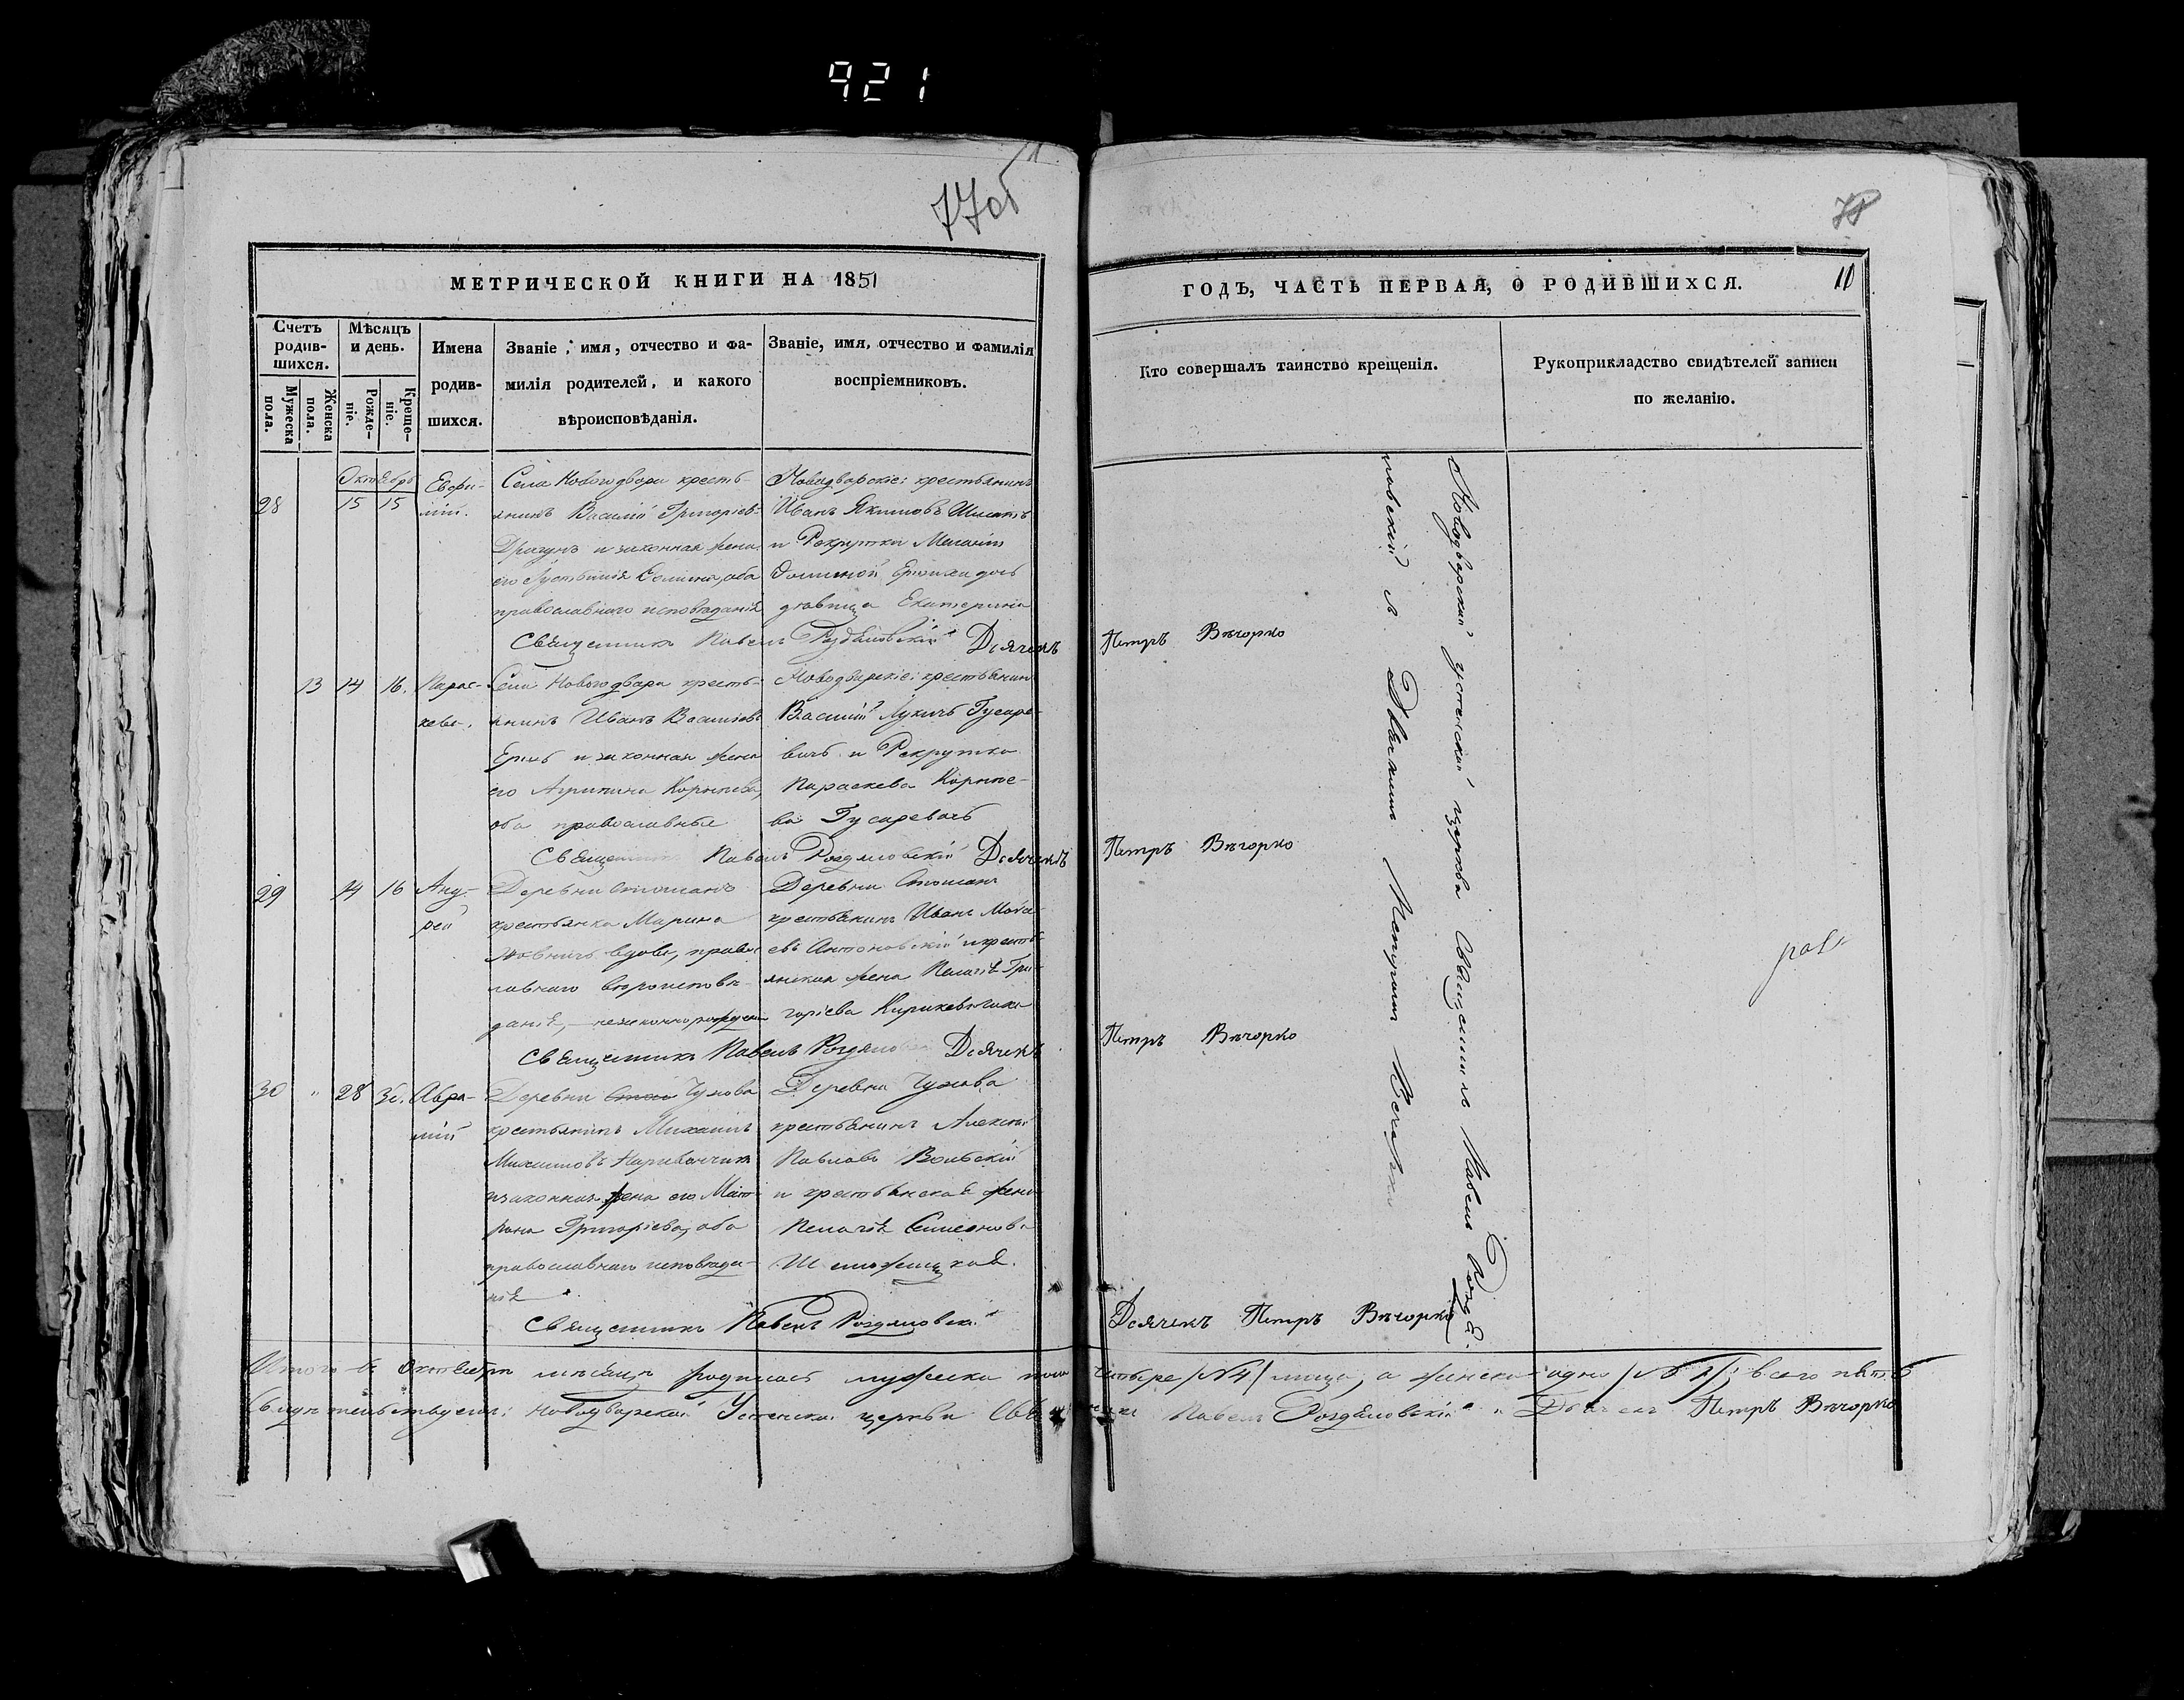 921
77об
78
МЕТРИЧЕСКОЙ КНИГИ НА 1851
ГОДЪ, ЧАСТЬ ПЕРВАЯ, О РОДИВШИХСЯ.
10
Счетъ родив-шихся.
Мужеска пола.
Женска пола.
Мѣсяцъ и день.
Рожде-ніе.
Креще-ніе.
Имена родив-шихся.
Званіе, имя, отчество и фа-
милія родителей, и какого
вѣроисповѣданія.
Званіе, имя, отчество и фамилія
воспріемниковъ.
Кто совершалъ таинство крещенія.
Рукоприкладство свидѣтелей записи
по желанію.
Октябрь
28 15 15
Евфи-
мій.
Села Новогодвора кресть-
янинъ Василій Григорьевъ
Драгунъ и законная жена
его Іустинія Семина, оба
православнаго исповѣданія
Новодворскіе: крестьянинъ
Иванъ Якимовъ
и Рекрутки
дочь
дѣвица Екатерина
Священникъ Павелъ Роздяловскій Дьячекъ Петръ Вѣчорко
13 14 16.
Парас-
кева.
Села Новогодвора кресть-
янинъ Иванъ Васильевъ
и законная жена
его Агрипина Корнѣева,
оба православные
Новодворскіе: крестьянинъ
Василій Лукичъ Гусаре-
вичъ и Рекрутка
Параскева Корнѣе-
ва Гусаревичъ
Священникъ Павелъ Роздяловскій Дьячекъ Петръ Вѣчорко
29 14 16
Анд-
рей
Деревни Стошанъ
крестьянка Марина
вдова, право-
славнаго вѣроисповѣ-
данія, — незаконнорожден
Деревни Стошанъ
крестьянинъ Иванъ
евъ Антоновскій и кресть-
янская жена Пелагія Гри-
горіева
Священникъ Павелъ Роздяловскій Дьячекъ Петръ Вѣчорко
30 " 28 30.
Авра-
мій
Деревни Чухова
крестьянинъ Михаилъ
Михаиловъ
и законная жена его Мат-
рона Григоріева, оба
православнаго исповѣда-
нія.
Деревни Чухова
крестьянинъ Алексѣй
Павловъ Вольскій
и крестьянская жена
Пелагія Семенова
Священникъ Павелъ Роздяловскій Дьячекъ Петръ Вѣчорко
Новодворской Успенской церкви Священникъ Павелъ Роздя-
ловскій съ Дьячкомъ Петромъ Вечоркомъ
Итого въ Октябрѣ мѣсяцѣ родилось мужеска пола четыре /№4/ лица, а женска одно /№1/; всего пять
Свидѣтельствуемъ: Новодворской Успенской церкви Священникъ Павелъ Роздяловскій и Дьячекъ Петръ Вѣчорко